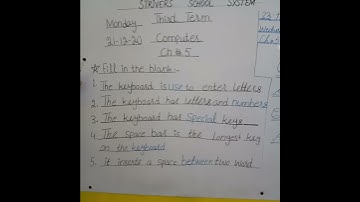 STRIVERS SCHOOL SYSTEM
Monday Third Term
21-12-20 Computer
Ch # 5
☆ Fill in the blank:-
1. The keyboard is use to enter letters
2. The keyboard has letters and numbers
3. The keyboard has Special keys
4. The space bar is the longest key
on the keyboard
5. it inserts a space between two word.